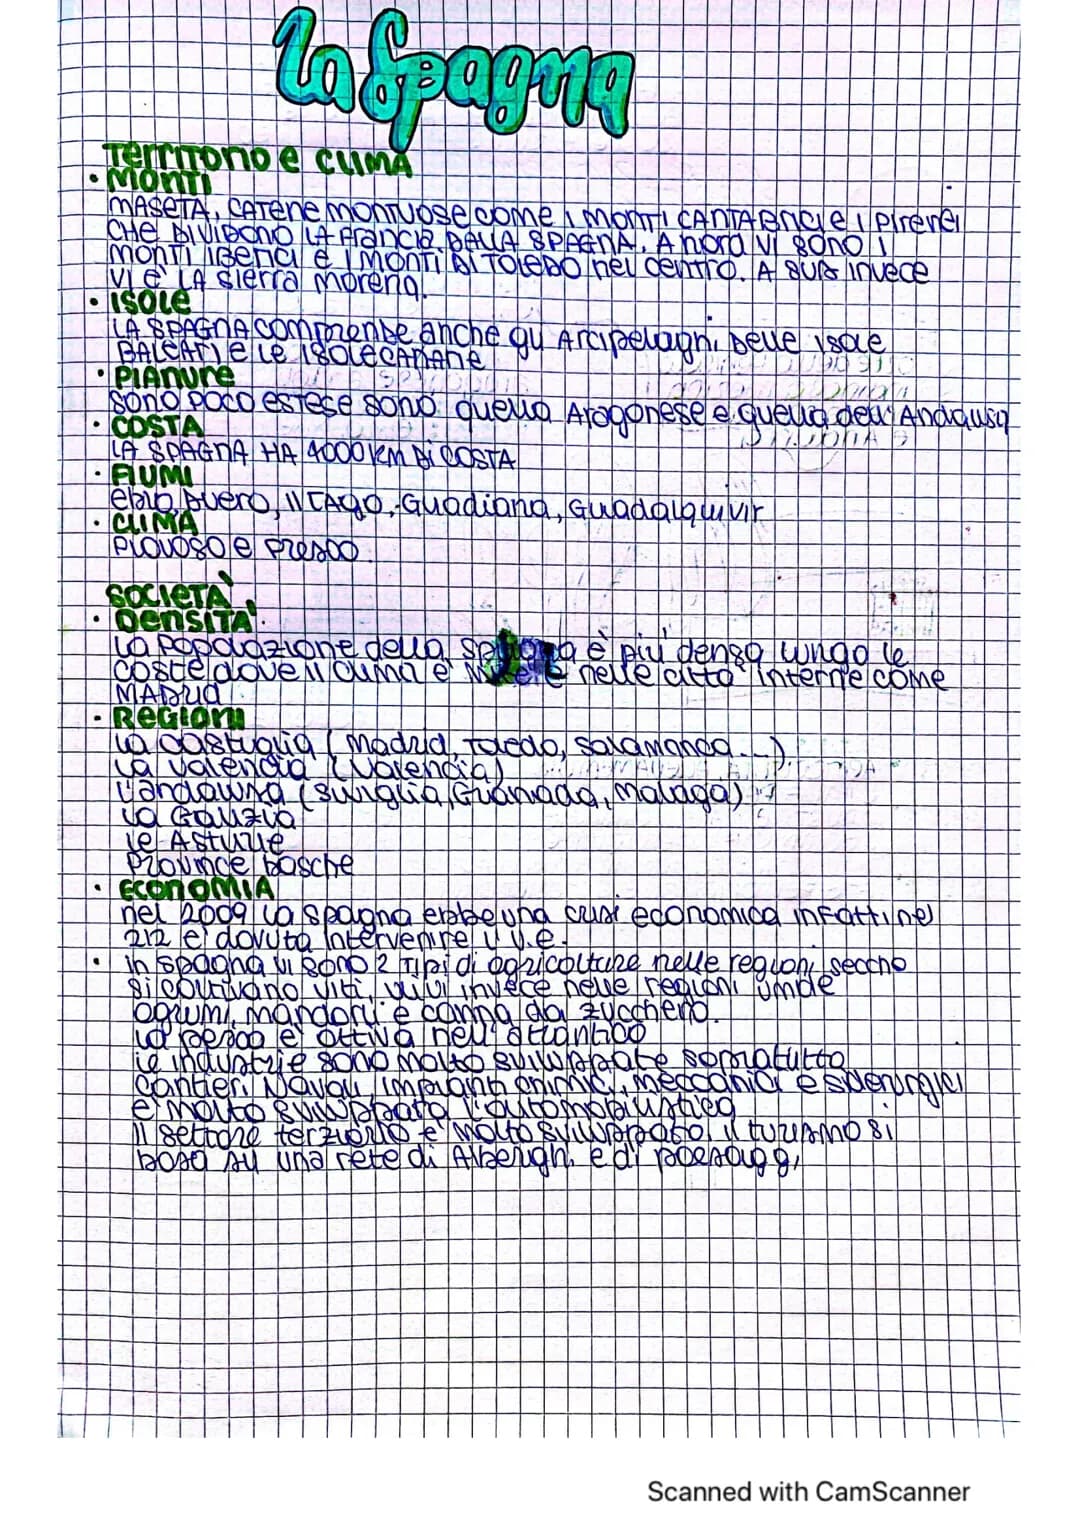 La Spagna
Territorio e clima
• Monti
Maseta, catene montuose come i monti Cantabrici e i Pirenei
che dividono la Francia dalla Spagna. A nord vi sono i
monti iberici e i monti di Toledo nel centro. A sud invece
vi è la Sierra Morena.
• Isole
La Spagna comprende anche gli arcipelaghi delle isole
Baleari e le isole Canarie
• Pianure
sono poco estese sono quella Aragonese e quella dell'Andalusia
• Costa
La Spagna ha 4000 km di costa
• Fiumi
ebro, Duero, il Tago, Guadiana, Guadalquivir
• Clima
piovoso e fresco
Società
• Densità
La popolazione della Spagna è più densa lungo le
coste dove il clima è e nelle città interne come
Madrid
• Regioni
La castiglia (Madrid, Toledo, Salamanca...)
La Valencia (Valencia)
L'andalusia (Siviglia, Granada, Malaga)
La Galizia
Le Asturie
Province basche
• Economia
nel 2009 la spagna ebbe una crisi economica infatti nel
212 è dovuta intervenire l'u.e.
• In spagna vi sono 2 tipi di agricolture nelle regioni secche
si coltivano viti, ulivi invece nelle regioni umide
agrumi, mandorli e canna da zucchero.
La pesca è attiva nell'atlantico
le industrie sono molto sviluppate sopratutto
cantieri navali, impianti chimici, meccanici e siderurgici
e molto sviluppata l'automobilistica
Il settore terziario è molto sviluppato, il turismo si
basa su una rete di Alberghi e di paesaggi
Scanned with CamScanner